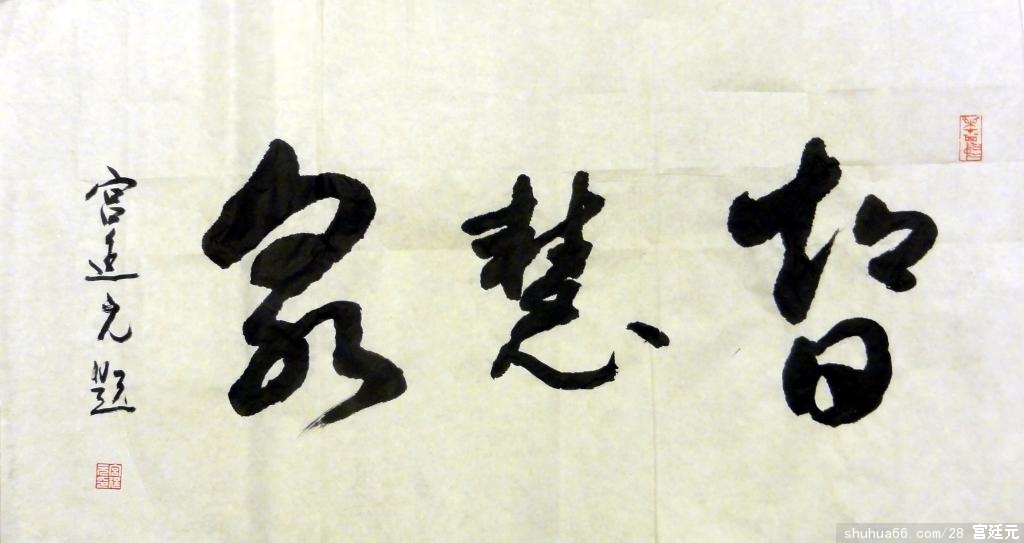 智慧泉
宫廷元题
shuhua66.com/28 宫廷元